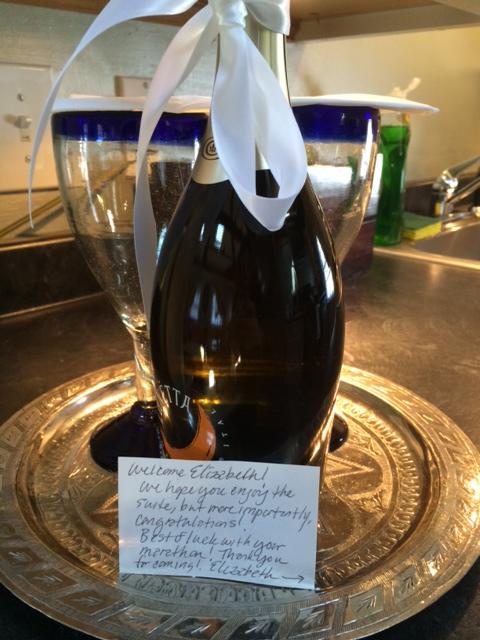 TTA
ITALY
Welcome Elizabeth!
We hope you enjoy the
suite, but more importantly,
Congratulations!
Best of luck with your
marathon! Thank you
for coming! Elizabeth →